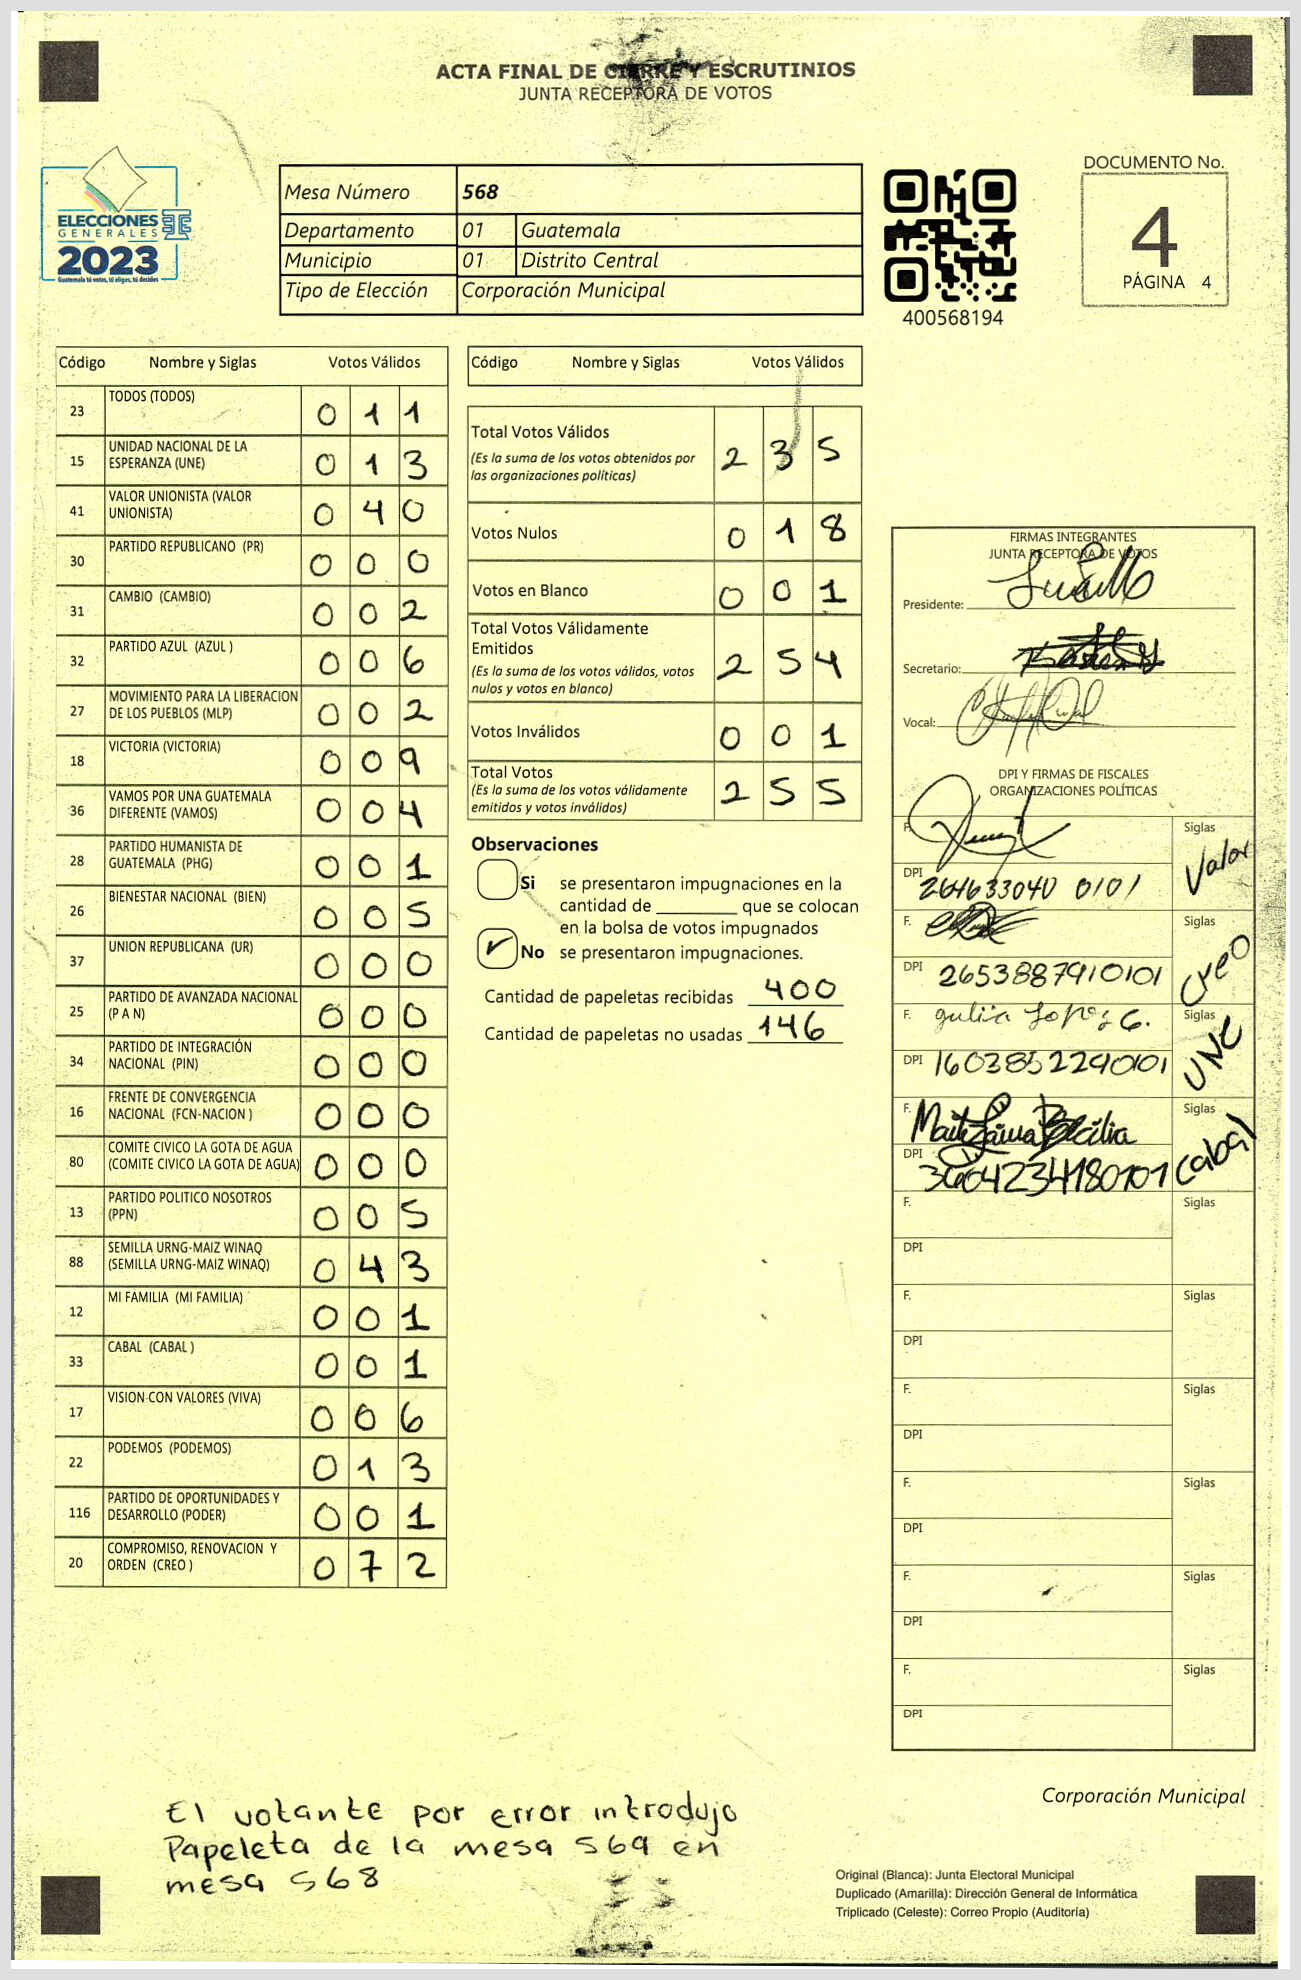 ACTA FINAL DE CIERRE Y ESCRUTINIOS
JUNTA RECEPTORA DE VOTOS
ELECCIONES
GENERALES
2023
Guatemala tú votas, tú eliges, tú decides
Mesa Número 568
Departamento 01 Guatemala
Municipio 01 Distrito Central
Tipo de Elección Corporación Municipal
400568194
DOCUMENTO No.
4
PÁGINA 4
Código Nombre y Siglas Votos Válidos
23 TODOS (TODOS) 0 1 1
15 UNIDAD NACIONAL DE LA ESPERANZA (UNE) 0 1 3
41 VALOR UNIONISTA (VALOR UNIONISTA) 0 4 0
30 PARTIDO REPUBLICANO (PR) 0 0 0
31 CAMBIO (CAMBIO) 0 0 2
32 PARTIDO AZUL (AZUL ) 0 0 6
27 MOVIMIENTO PARA LA LIBERACION DE LOS PUEBLOS (MLP) 0 0 2
18 VICTORIA (VICTORIA) 0 0 9
36 VAMOS POR UNA GUATEMALA DIFERENTE (VAMOS) 0 0 4
28 PARTIDO HUMANISTA DE GUATEMALA (PHG) 0 0 1
26 BIENESTAR NACIONAL (BIEN) 0 0 5
37 UNION REPUBLICANA (UR) 0 0 0
25 PARTIDO DE AVANZADA NACIONAL (P A N) 0 0 0
34 PARTIDO DE INTEGRACIÓN NACIONAL (PIN) 0 0 0
16 FRENTE DE CONVERGENCIA NACIONAL (FCN-NACION ) 0 0 0
80 COMITE CIVICO LA GOTA DE AGUA (COMITE CIVICO LA GOTA DE AGUA) 0 0 0
13 PARTIDO POLITICO NOSOTROS (PPN) 0 0 5
88 SEMILLA URNG-MAIZ WINAQ (SEMILLA URNG-MAIZ WINAQ) 0 4 3
12 MI FAMILIA (MI FAMILIA) 0 0 1
33 CABAL (CABAL ) 0 0 1
17 VISION CON VALORES (VIVA) 0 0 6
22 PODEMOS (PODEMOS) 0 1 3
116 PARTIDO DE OPORTUNIDADES Y DESARROLLO (PODER) 0 0 1
20 COMPROMISO, RENOVACION Y ORDEN (CREO ) 0 7 2
Código Nombre y Siglas Votos Válidos
Total Votos Válidos 2 3 5
(Es la suma de los votos obtenidos por
las organizaciones políticas)
Votos Nulos 0 1 8
Votos en Blanco 0 0 1
Total Votos Válidamente
Emitidos 2 5 4
(Es la suma de los votos válidos, votos
nulos y votos en blanco)
Votos Inválidos 0 0 1
Total Votos 2 5 5
(Es la suma de los votos válidamente
emitidos y votos inválidos)
Observaciones
Si se presentaron impugnaciones en la
cantidad de ________ que se colocan
en la bolsa de votos impugnados
No se presentaron impugnaciones.
Cantidad de papeletas recibidas 400
Cantidad de papeletas no usadas 146
FIRMAS INTEGRANTES
JUNTA RECEPTORA DE VOTOS
Presidente:
Secretario:
Vocal:
DPI Y FIRMAS DE FISCALES
ORGANIZACIONES POLÍTICAS
F. Siglas Valor
DPI 264633040 0101
F. Siglas Creo
DPI 2653887910101
F. Julia Lopez G. Siglas UNE
DPI 1603852290101
F. Siglas Cabal
DPI 3604234180101
F. Siglas
DPI
F. Siglas
DPI
F. Siglas
DPI
F. Siglas
DPI
F. Siglas
DPI
F. Siglas
DPI
Corporación Municipal
El votante por error introdujo
Papeleta de la mesa 569 en
mesa 568
Original (Blanca): Junta Electoral Municipal
Duplicado (Amarilla): Dirección General de Informática
Triplicado (Celeste): Correo Propio (Auditoría)